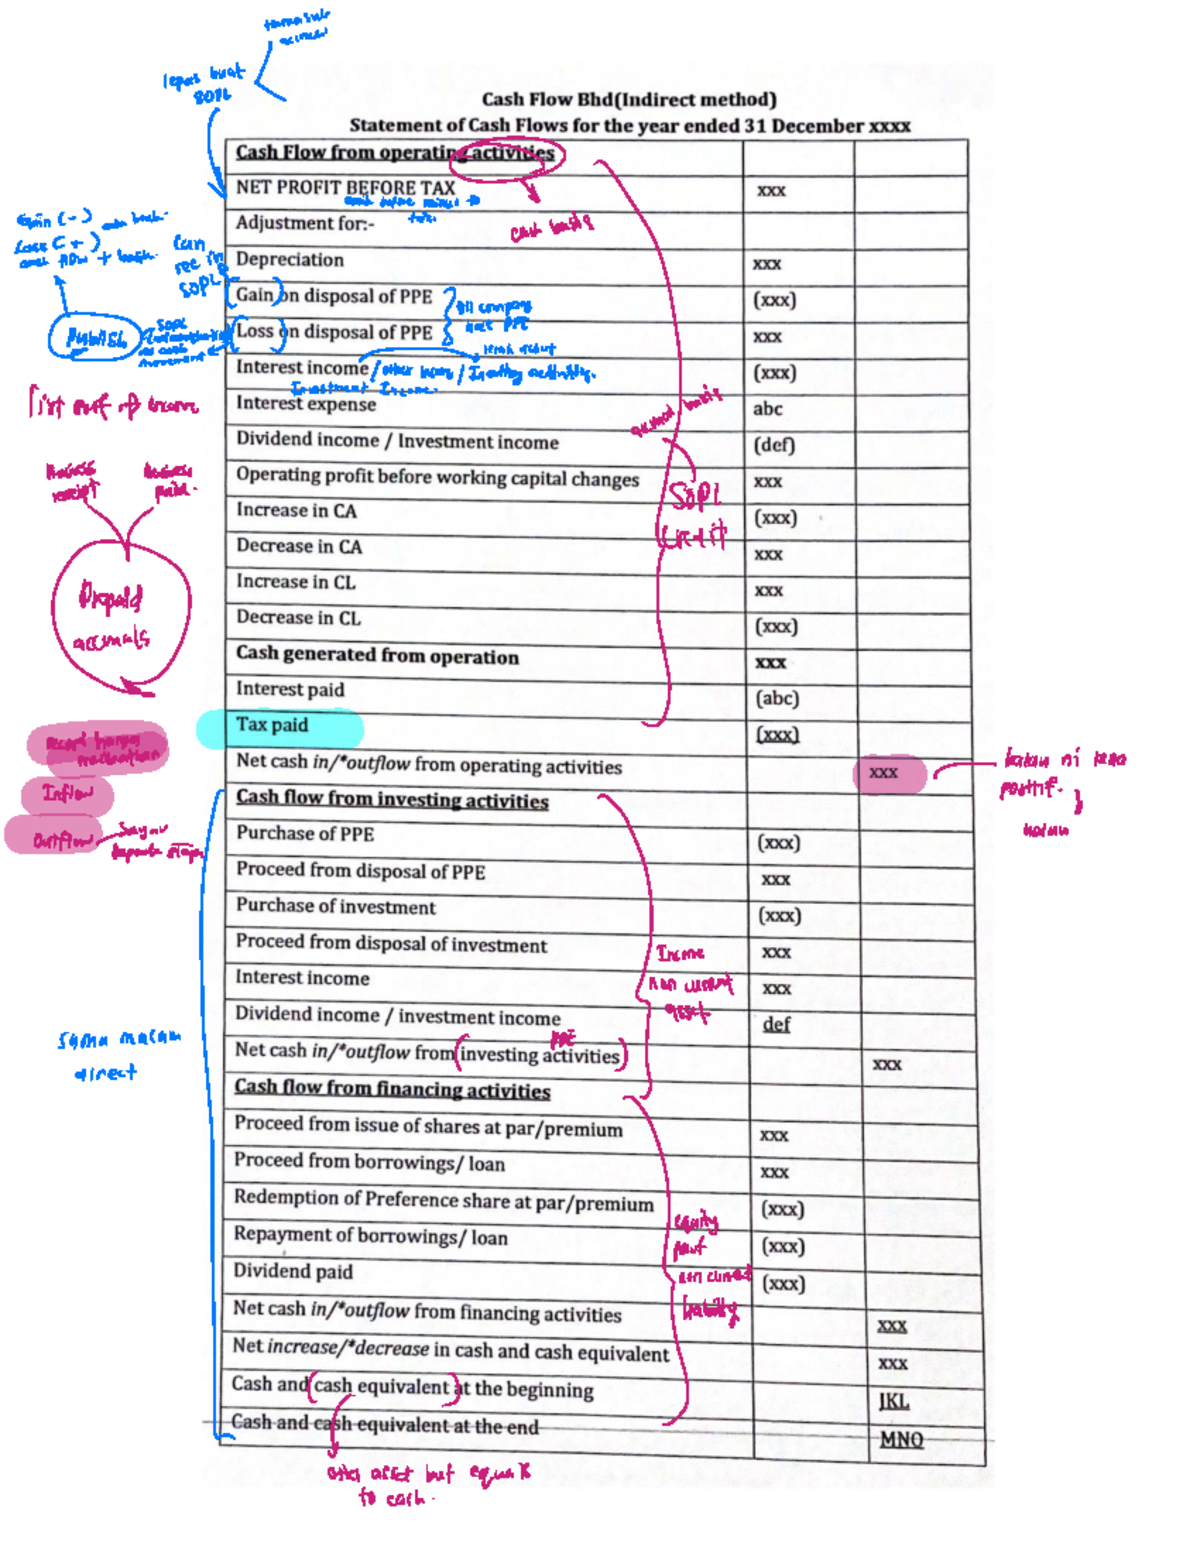 lepas buat
SOPL
Cash Flow Bhd(Indirect method)
Statement of Cash Flows for the year ended 31 December xxxx
Cash Flow from operating activities
NET PROFIT BEFORE TAX xxx
cash basis
Adjustment for:-
Gain (-)
Loss (+)
can
see in
SOPL
Depreciation xxx
Gain on disposal of PPE (xxx)
Loss on disposal of PPE xxx
Interest income / other income / Investing activities. (xxx)
Investment Income.
Interest expense abc
list out of income
Dividend income / Investment income (def)
Operating profit before working capital changes xxx
SOPL
credit
Increase in CA (xxx)
Decrease in CA xxx
Increase in CL xxx
Decrease in CL (xxx)
Prepaid
accruals
Cash generated from operation xxx
Interest paid (abc)
Tax paid (xxx)
Net cash in/*outflow from operating activities xxx
kalau ni kena
positif.
Inflow
Outflow
Cash flow from investing activities
Purchase of PPE (xxx)
Proceed from disposal of PPE xxx
Purchase of investment (xxx)
Proceed from disposal of investment xxx
Interest income xxx
Dividend income / investment income def
Income
non current
asset
Net cash in/*outflow from investing activities xxx
sama macam
direct
Cash flow from financing activities
Proceed from issue of shares at par/premium xxx
Proceed from borrowings/ loan xxx
Redemption of Preference share at par/premium (xxx)
Repayment of borrowings/ loan (xxx)
Dividend paid (xxx)
equity
part
non current
liability
Net cash in/*outflow from financing activities xxx
Net increase/*decrease in cash and cash equivalent xxx
Cash and cash equivalent at the beginning JKL
Cash and cash equivalent at the end MNO
other asset but equal
to cash.